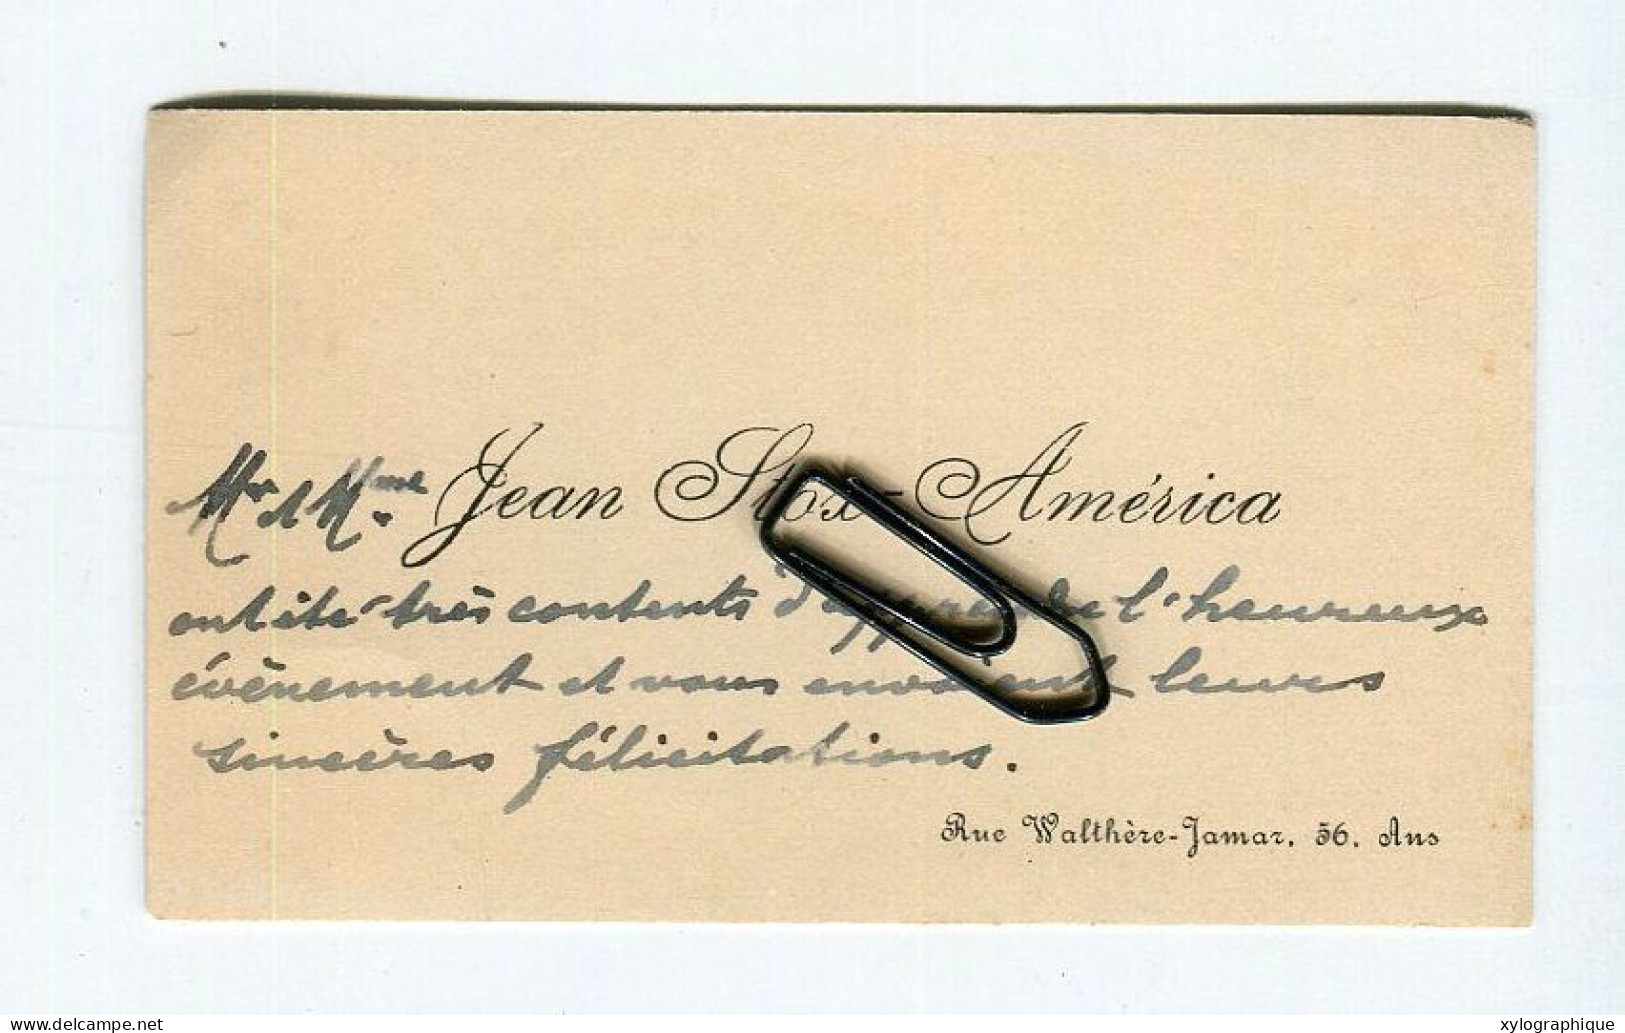 Mr et Mme. Jean Stox-América
ont été très contents d'apprendre l'heureux
évènement et vous envoient leurs
sincères félicitations.
Rue Walthère-Jamar, 56. Ans
delcampe.net
xylographique